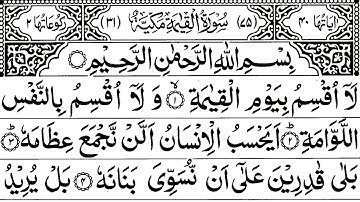 اٰيَاتُهَا ۴۰ (۷۵) سُوْرَةُ الْقِيٰمَةِ مَكِّيَّةٌ (۳۱) رُكُوْعَاتُهَا ۲
بِسْمِ اللّٰهِ الرَّحْمٰنِ الرَّحِيْمِ
لَاۤ اُقْسِمُ بِيَوْمِ الْقِيٰمَةِ ۝۱ وَ لَاۤ اُقْسِمُ بِالنَّفْسِ
اللَّوَّامَةِ ۝۲ اَيَحْسَبُ الْاِنْسَانُ اَلَّنْ نَّجْمَعَ عِظَامَهٗ ۝۳
بَلٰى قٰدِرِيْنَ عَلٰۤى اَنْ نُّسَوِّىَ بَنَانَهٗ ۝۴ بَلْ يُرِيْدُ